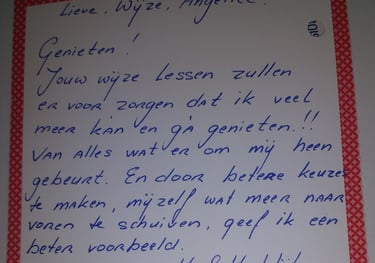 Lieve, Wijze,
Genieten!
Jouw wijze lessen zullen
er voor zorgen dat ik veel
meer kán en gá genieten.!!
Van alles wat er om mij heen
gebeurt. En door betere keuzes
te maken, mijzelf wat meer naar
voren te schuiven, geef ik een
beter voorbeeld.